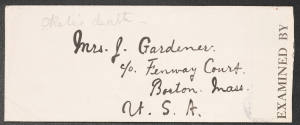 Okalio's death -
Mrs. J. Gardener.
c/o. Fenway Court.
Boston. Mass.
U. S. A.
EXAMINED BY